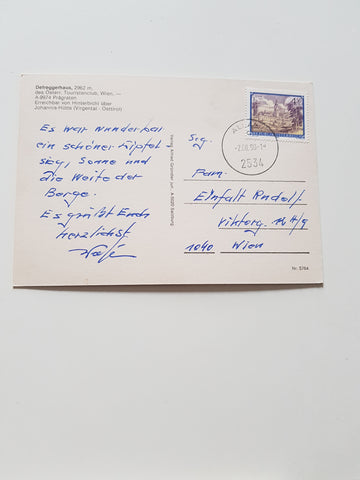 Defreggerhaus, 2962 m,
des Österr. Touristenclub, Wien, —
A-9974 Prägraten
Erreichbar von Hinterbichl über
Johannis-Hütte (Virgental - Osttirol)
Es war wunderbar
ein schöner Gipfel
sieg, Sonne und
die Weite der
Berge.
Es grüßt Euch
herzlichst
Verlag Alfred Gründler jun. A-5020 Salzburg
2.08.90-1
2534
Fam.
Einfalt Rudolf
Viktorg. 14/9
1040 Wien
Nr. 5764